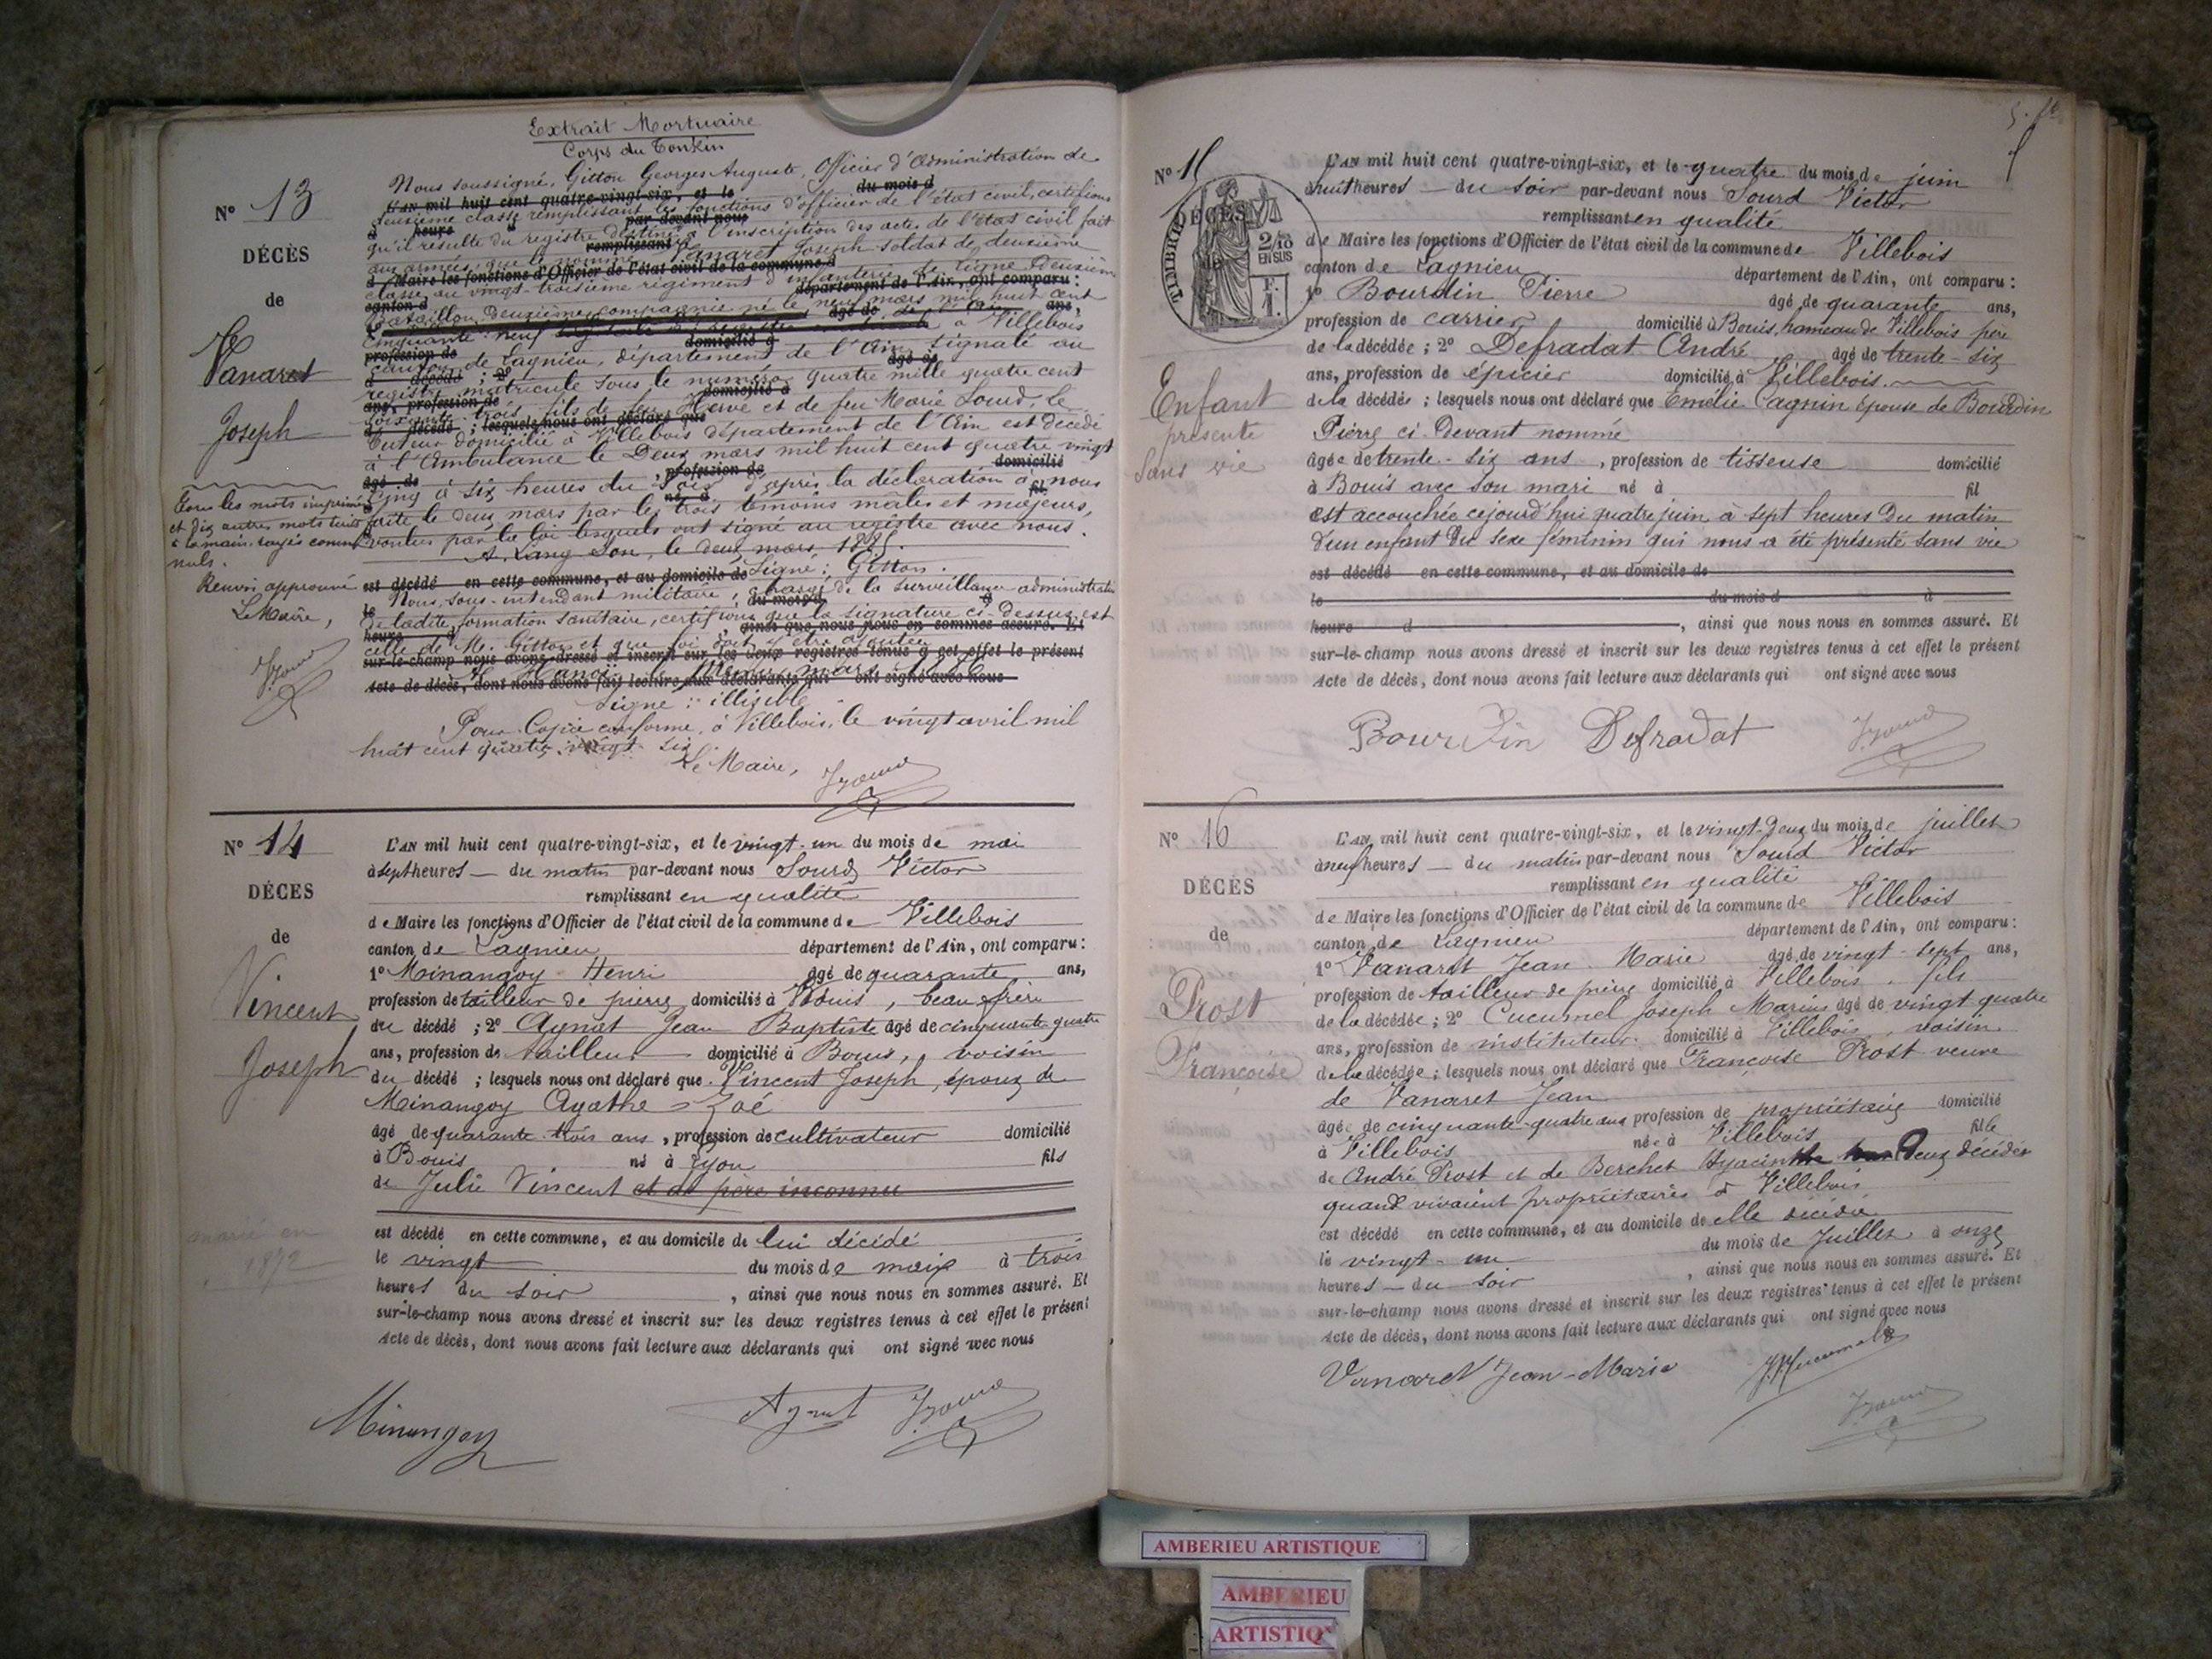 Extrait Mortuaire
Corps du Tonkin
Nous soussigné, Gitton Georges Auguste, Officier d'Administration de
L'AN mil huit cent quatre-vingt-six, et le du mois d
deuxième classe remplissant les fonctions d'officier de l'état civil, certifions
heure par-devant nous
qu'il résulte du registre destiné à l'inscription des actes de l'état civil fait
remplissant
aux armées, que le nommé Vanaret Joseph soldat de deuxième
d Maire les fonctions d'Officier de l'état civil de la commune d
classe au vingt-troisième régiment d'infanterie de ligne deuxième
canton d département de l'Ain, ont comparu:
Bataillon, deuxième compagnie né le neuf mars mil huit cent
âgé de ans,
Cinquante neuf à Villebois
profession de domicilié à
canton de Lagnieu, département de l'Ain, signalé au
d décédé ; 2° âgé de
registre matricule sous le numéro quatre mille quatre cent
ans, profession de domicilié à
soixante trois, fils de feu Hervé et de feu Marie Sourd, le
d décédé ; lesquels nous ont déclaré que
tuteur domicilié à Villebois département de l'Ain est décédé
à l'Ambulance le Deux mars mil huit cent quatre vingt
âgé de , profession de domicilié
Cinq à six heures du soir d'après la déclaration à nous
né à fil
faite le deux mars par les trois témoins mâles et majeurs,
voulus par la loi lesquels ont signé au registre avec nous.
A Lang Son, le deux mars 1885.
est décédé en cette commune, et au domicile de Signé: Gitton.
Nous, sous-intendant militaire, chargé de la surveillance administrative
le du mois d à
de ladite formation sanitaire, certifions que la signature ci-dessus est
heure d , ainsi que nous nous en sommes assuré. Et
celle de Mr. Gitton et que foi doit y être ajoutée
sur-le-champ nous avons dressé et inscrit sur les deux registres tenus à cet effet le présent
Acte de décès, dont nous avons fait lecture aux déclarants qui ont signé avec nous
Signé: illisible
Pour Copie conforme, à Villebois, le vingt avril mil
huit cent quatre vingt six
Le Maire,
N° 13
DÉCÈS
de
Vanaret
Joseph
Tous les mots imprimés
et dix autres mots écrits
à la main rayés comme
nuls.
Renvoi approuvé
Le Maire,
N° 14
DÉCES
de
Vincent
Joseph
marié en
1872
L'AN mil huit cent quatre-vingt-six, et le vingt-un du mois de mai
à sept heures du matin par-devant nous Sourd Victor
remplissant en qualité
de Maire les fonctions d'Officier de l'état civil de la commune de Villebois
canton de Lagnieu département de l'Ain, ont comparu:
1° Minangoy Henri âgé de quarante ans,
profession de tailleur de pierre domicilié à Bouis, beau frère
du décédé ; 2° Aynat Jean Baptiste âgé de cinquante quatre
ans, profession de tailleur domicilié à Bouis, voisin
du décédé ; lesquels nous ont déclaré que Vincent Joseph, époux de
Minangoy Agathe Zoé
âgé de quarante trois ans, profession de cultivateur domicilié
à Bouis né à Lyon fils
de Julie Vincent et de père inconnu
est décédé en cette commune, et au domicile de lui décédé
le vingt du mois de mai à trois
heures du soir , ainsi que nous nous en sommes assuré. Et
sur-le-champ nous avons dressé et inscrit sur les deux registres tenus à cet effet le présent
Acte de décès, dont nous avons fait lecture aux déclarants qui ont signé avec nous
Minangoy Aynat
N° 15
DÉCÈS
TIMBRE
2/10
EN SUS
F.
1.
Enfant
présenté
Sans vie
L'AN mil huit cent quatre-vingt-six, et le quatre du mois de juin
à huit heures du soir par-devant nous Sourd Victor
remplissant en qualité
de Maire les fonctions d'Officier de l'état civil de la commune de Villebois
canton de Lagnieu département de l'Ain, ont comparu:
1° Bourdin Pierre âgé de quarante ans,
profession de carrier domicilié à Bouis, hameau de Villebois père
de la décédée ; 2° Defradat André âgé de trente-six
ans, profession de épicier domicilié à Villebois.
de la décédée ; lesquels nous ont déclaré que Emélie Cagnin épouse de Bourdin
Pierre ci-devant nommé
âgée de trente-six ans, profession de tisseuse domicilié
à Bouis avec son mari né à fil
est accouchée cejourd'hui quatre juin à sept heures du matin
d'un enfant du sexe féminin qui nous a été présenté sans vie
est décédé en cette commune, et au domicile de
le du mois d à
heure d , ainsi que nous nous en sommes assuré. Et
sur-le-champ nous avons dressé et inscrit sur les deux registres tenus à cet effet le présent
Acte de décès, dont nous avons fait lecture aux déclarants qui ont signé avec nous
Bourdin Defradat
N° 16
DÉCÈS
de
Prost
Françoise
L'AN mil huit cent quatre-vingt-six, et le vingt-deux du mois de juillet
à neuf heures du matin par-devant nous Sourd Victor
remplissant en qualité
de Maire les fonctions d'Officier de l'état civil de la commune de Villebois
canton de Lagnieu département de l'Ain, ont comparu:
1° Vanaret Jean-Marie âgé de vingt-sept ans,
profession de tailleur de pierre domicilié à Villebois, fils
de la décédée ; 2° Cucumel Joseph Marius âgé de vingt quatre
ans, profession de instituteur domicilié à Villebois, voisin
de la décédée ; lesquels nous ont déclaré que Françoise Prost veuve
de Vanaret Jean
âgée de cinquante-quatre ans profession de propriétaire domicilié
à Villebois née à Villebois fille
de André Prost et de Berchet Hyacinthe deux décédés
quand vivaient propriétaires à Villebois
est décédé en cette commune, et au domicile de elle décédée
le vingt-un du mois de Juillet à onze
heures du soir , ainsi que nous nous en sommes assuré. Et
sur-le-champ nous avons dressé et inscrit sur les deux registres tenus à cet effet le présent
Acte de décès, dont nous avons fait lecture aux déclarants qui ont signé avec nous
Vanaret Jean-Marie
AMBERIEU ARTISTIQUE
AMBERIEU
ARTISTIQ